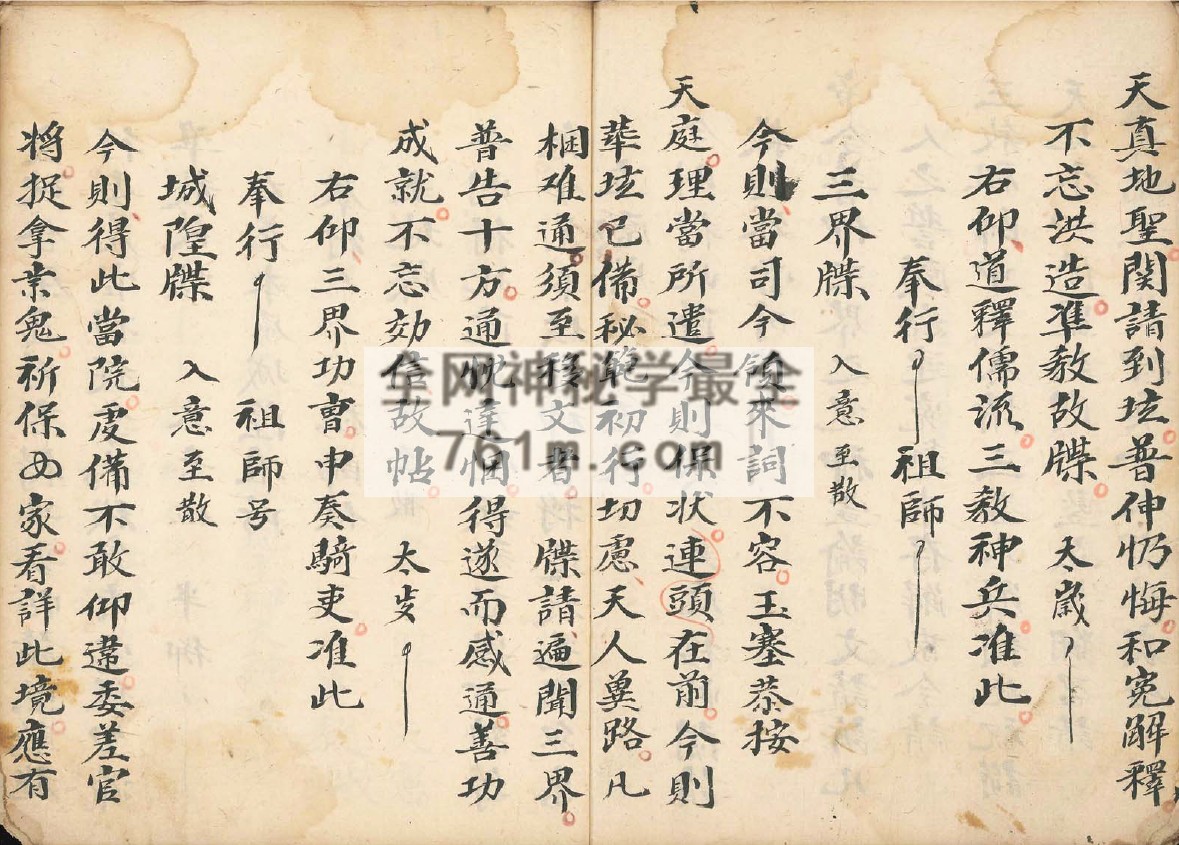 天真地聖関請到坛普伸忏悔和寃解釋
不忘洪造準教故牒 太歲
右仰道釋儒流三教神兵准此
奉行 祖師
三界牒 入意至散
今則當司今領來詞不容玉塞恭按
天庭理當所遣今則保状連頭在前今則
華坛已備秘範初行切慮天人異路凡
梱难通須至移文者 牒請遍聞三界
普告十方通忱達悃得遂而感通善功
成就不忘効信故帖 太歳
右仰三界功曺申奏騎吏准此
奉行 祖師号
城隍牒 入意至散
今則得此當院虔備不敢仰違委差官
将捉拿祟鬼祈保ㄡ家看詳此境應有
全网神秘学最全
761m.com